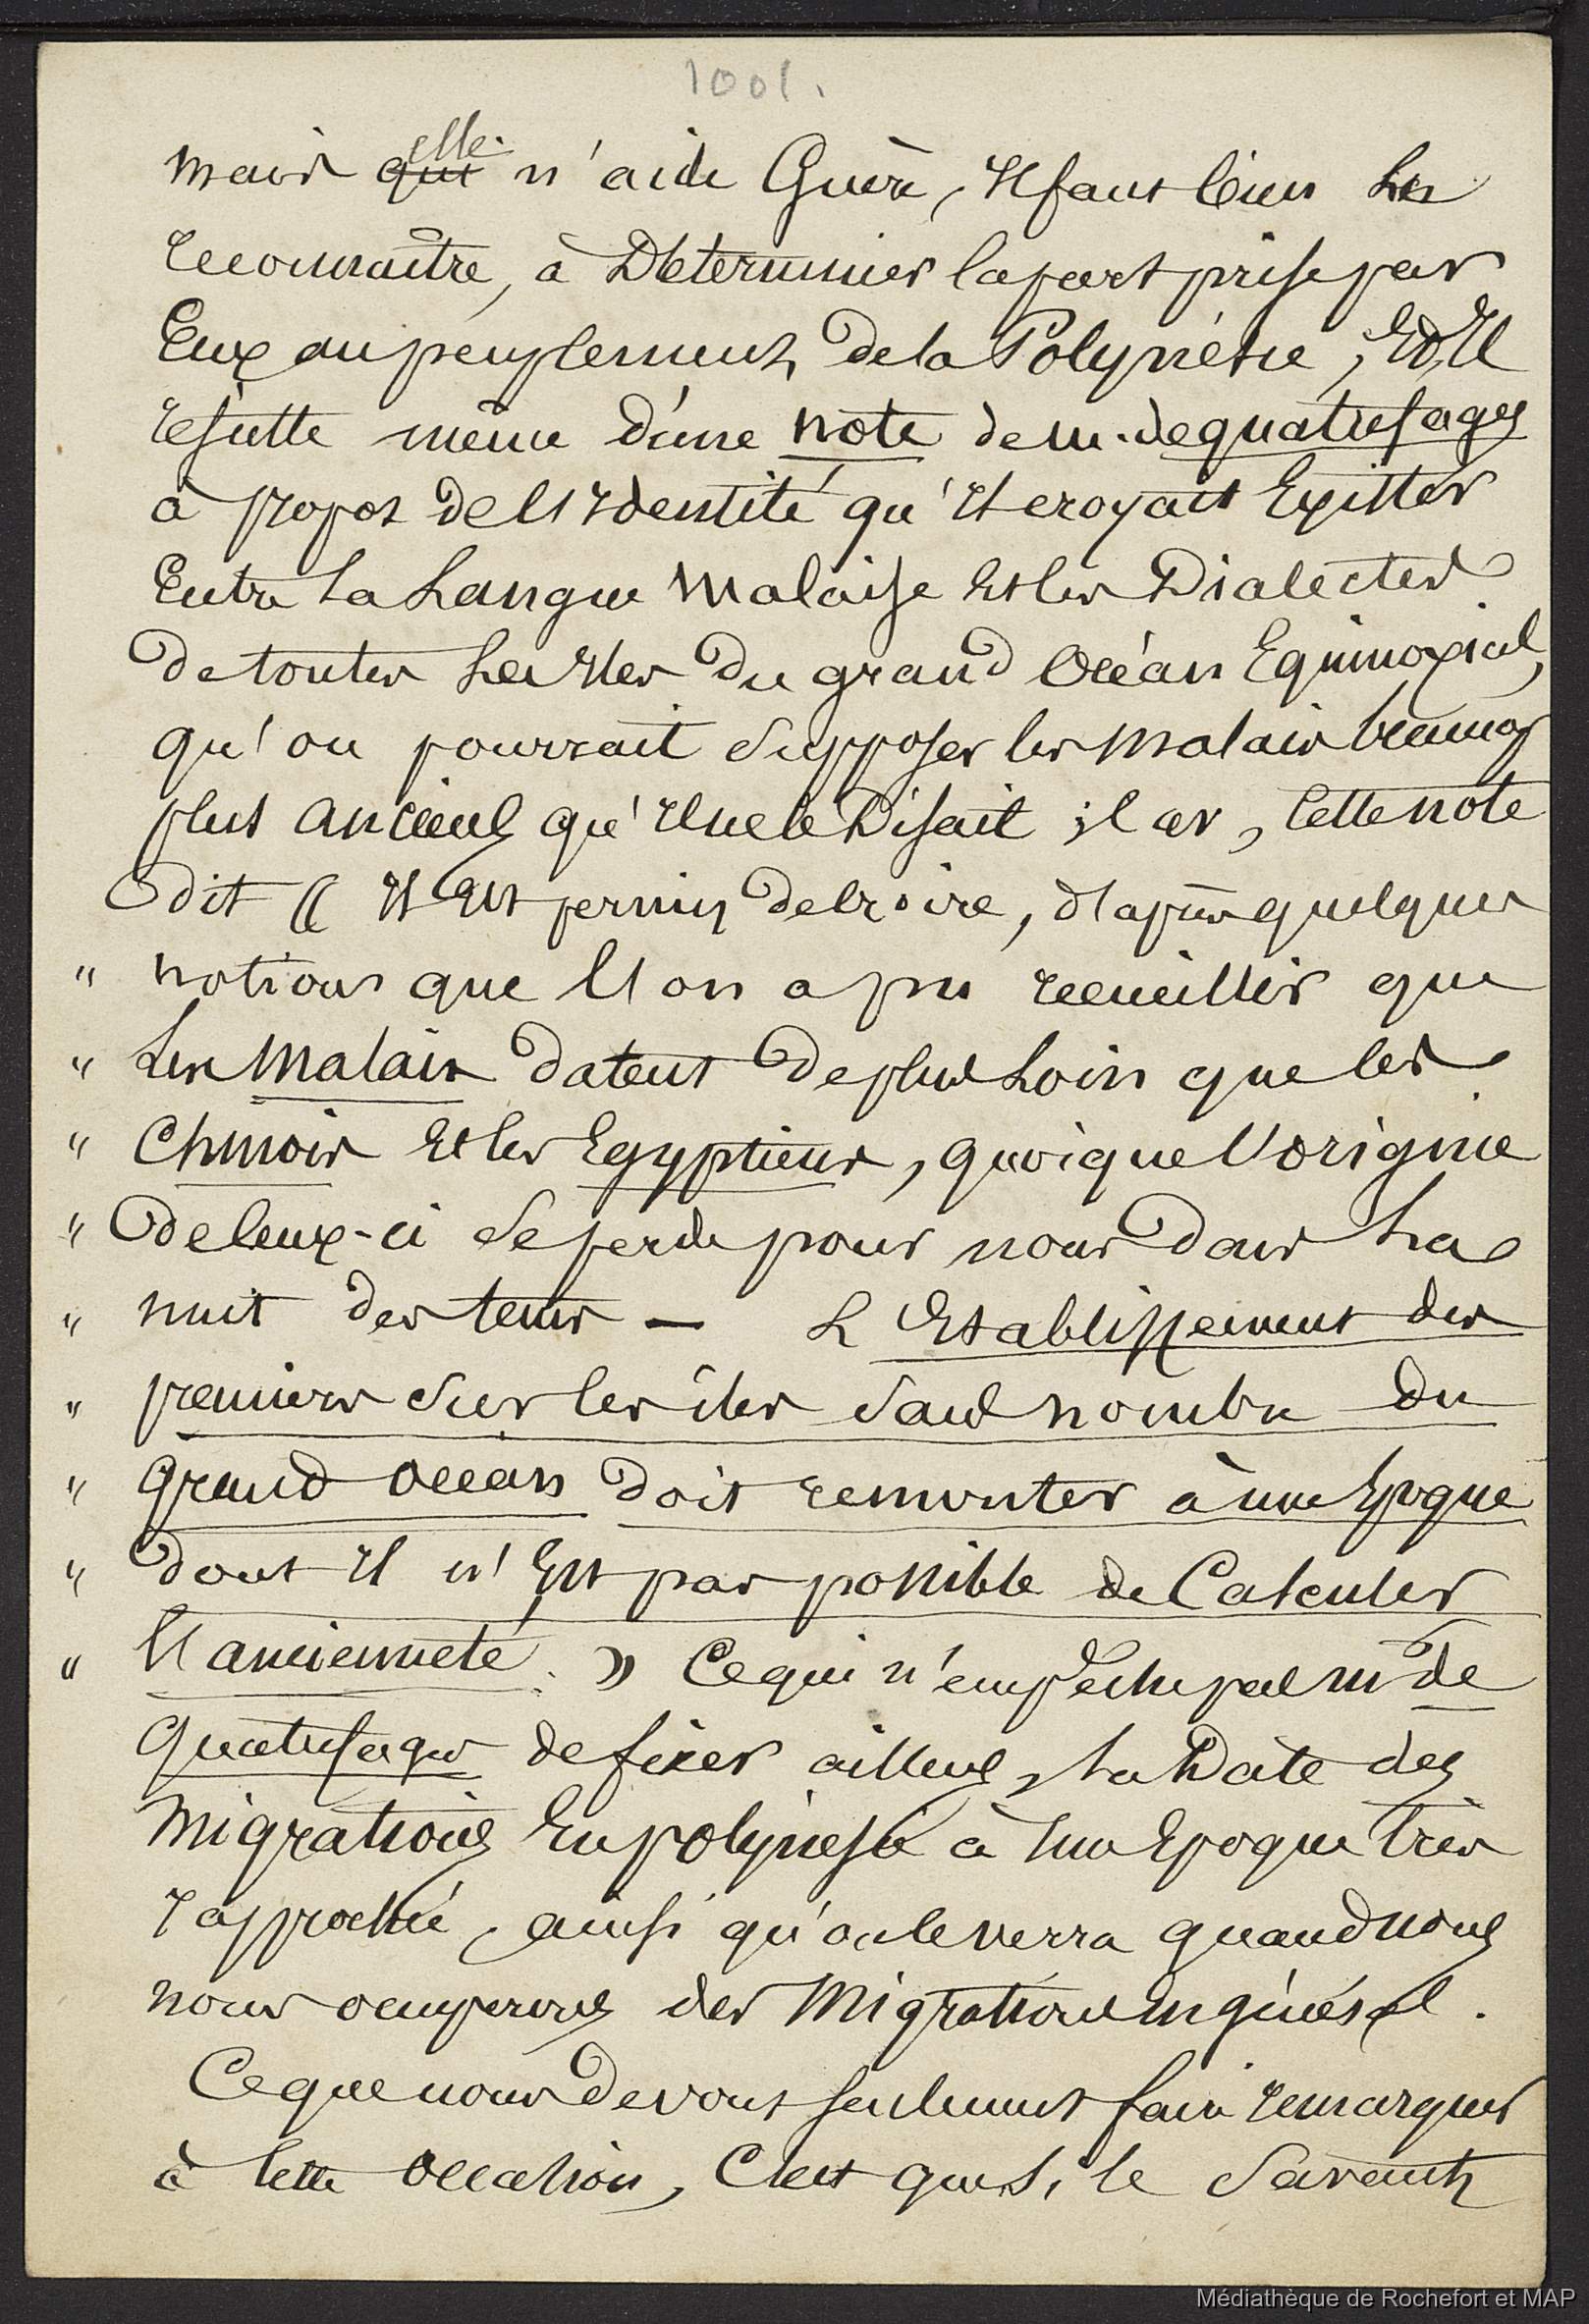 1001.
elle
mais qui n'aide Guère, Il faut bien Les
reconnaître, à Déterminer la part prise par
Eux au peuplement, de la Polynésie, Et Il
résulte même d'une note de M. de quatrefages
à propos de l'Identité qu'Il croyait Exister
Entre La Langue Malaise et les Dialectes
de toutes Les Iles du grand Océan Equinoxial,
qu'on pourrait supposer les Malais beaucoup
plus anciens qu'Il ne le Disait; car, Cette note
dit « Il Est permis de croire, d'après quelques
" notions que l'on a pu recueillir que
" Les Malais datent de plus Loin que les
" Chinois et les Egyptiens, quoique l'origine
" de Ceux-ci se perde pour nous dans La
" nuit des tems — L'Etablissement des
" premiers sur les îles sans nombre du
" Grand océan doit remonter à une Epoque
" dont Il n'Est pas possible de Calculer
" l'ancienneté. » Ce qui n'empêche pas Mr de
Quatrefages de fixer ailleurs, La Date des
Migrations En polynésie à Une Epoque très
rapprochée, ainsi qu'on le verra quand nous
nous occuperons des Migrations En général.
Ce que nous devons seulement faire remarquer
à Cette occasion, C'est que si le Savant,
Médiathèque de Rochefort et MAP